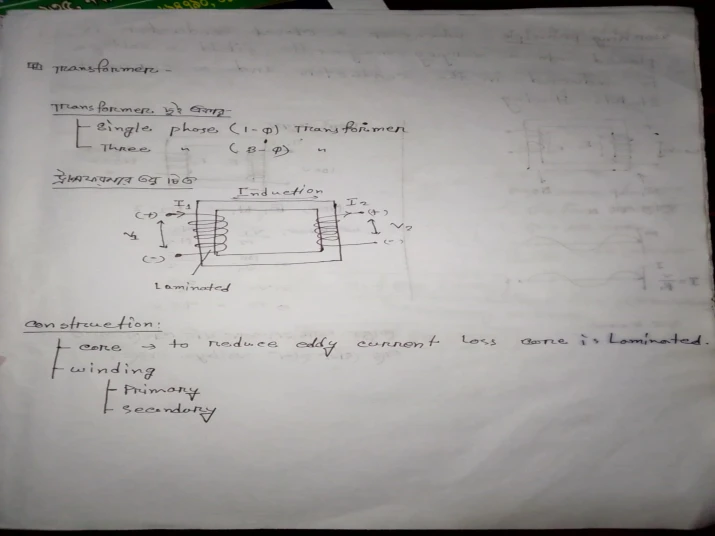 Transformer -
Transformer দুই প্রকার-
Single phase (1-Φ) Transformer
Three " (3-Φ) "
ট্রান্সফরমারের চিত্র
Induction
I1
I2
(+)
(+)
V1
V2
(-)
(-)
Laminated
Construction:
core → to reduce eddy current Loss core is Laminated.
winding
Primary
Secondary